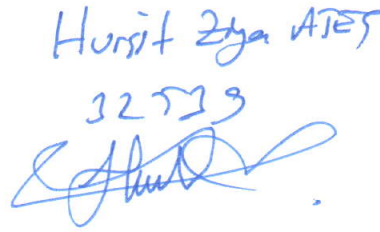 Hurşit Ziya ATEŞ
32539